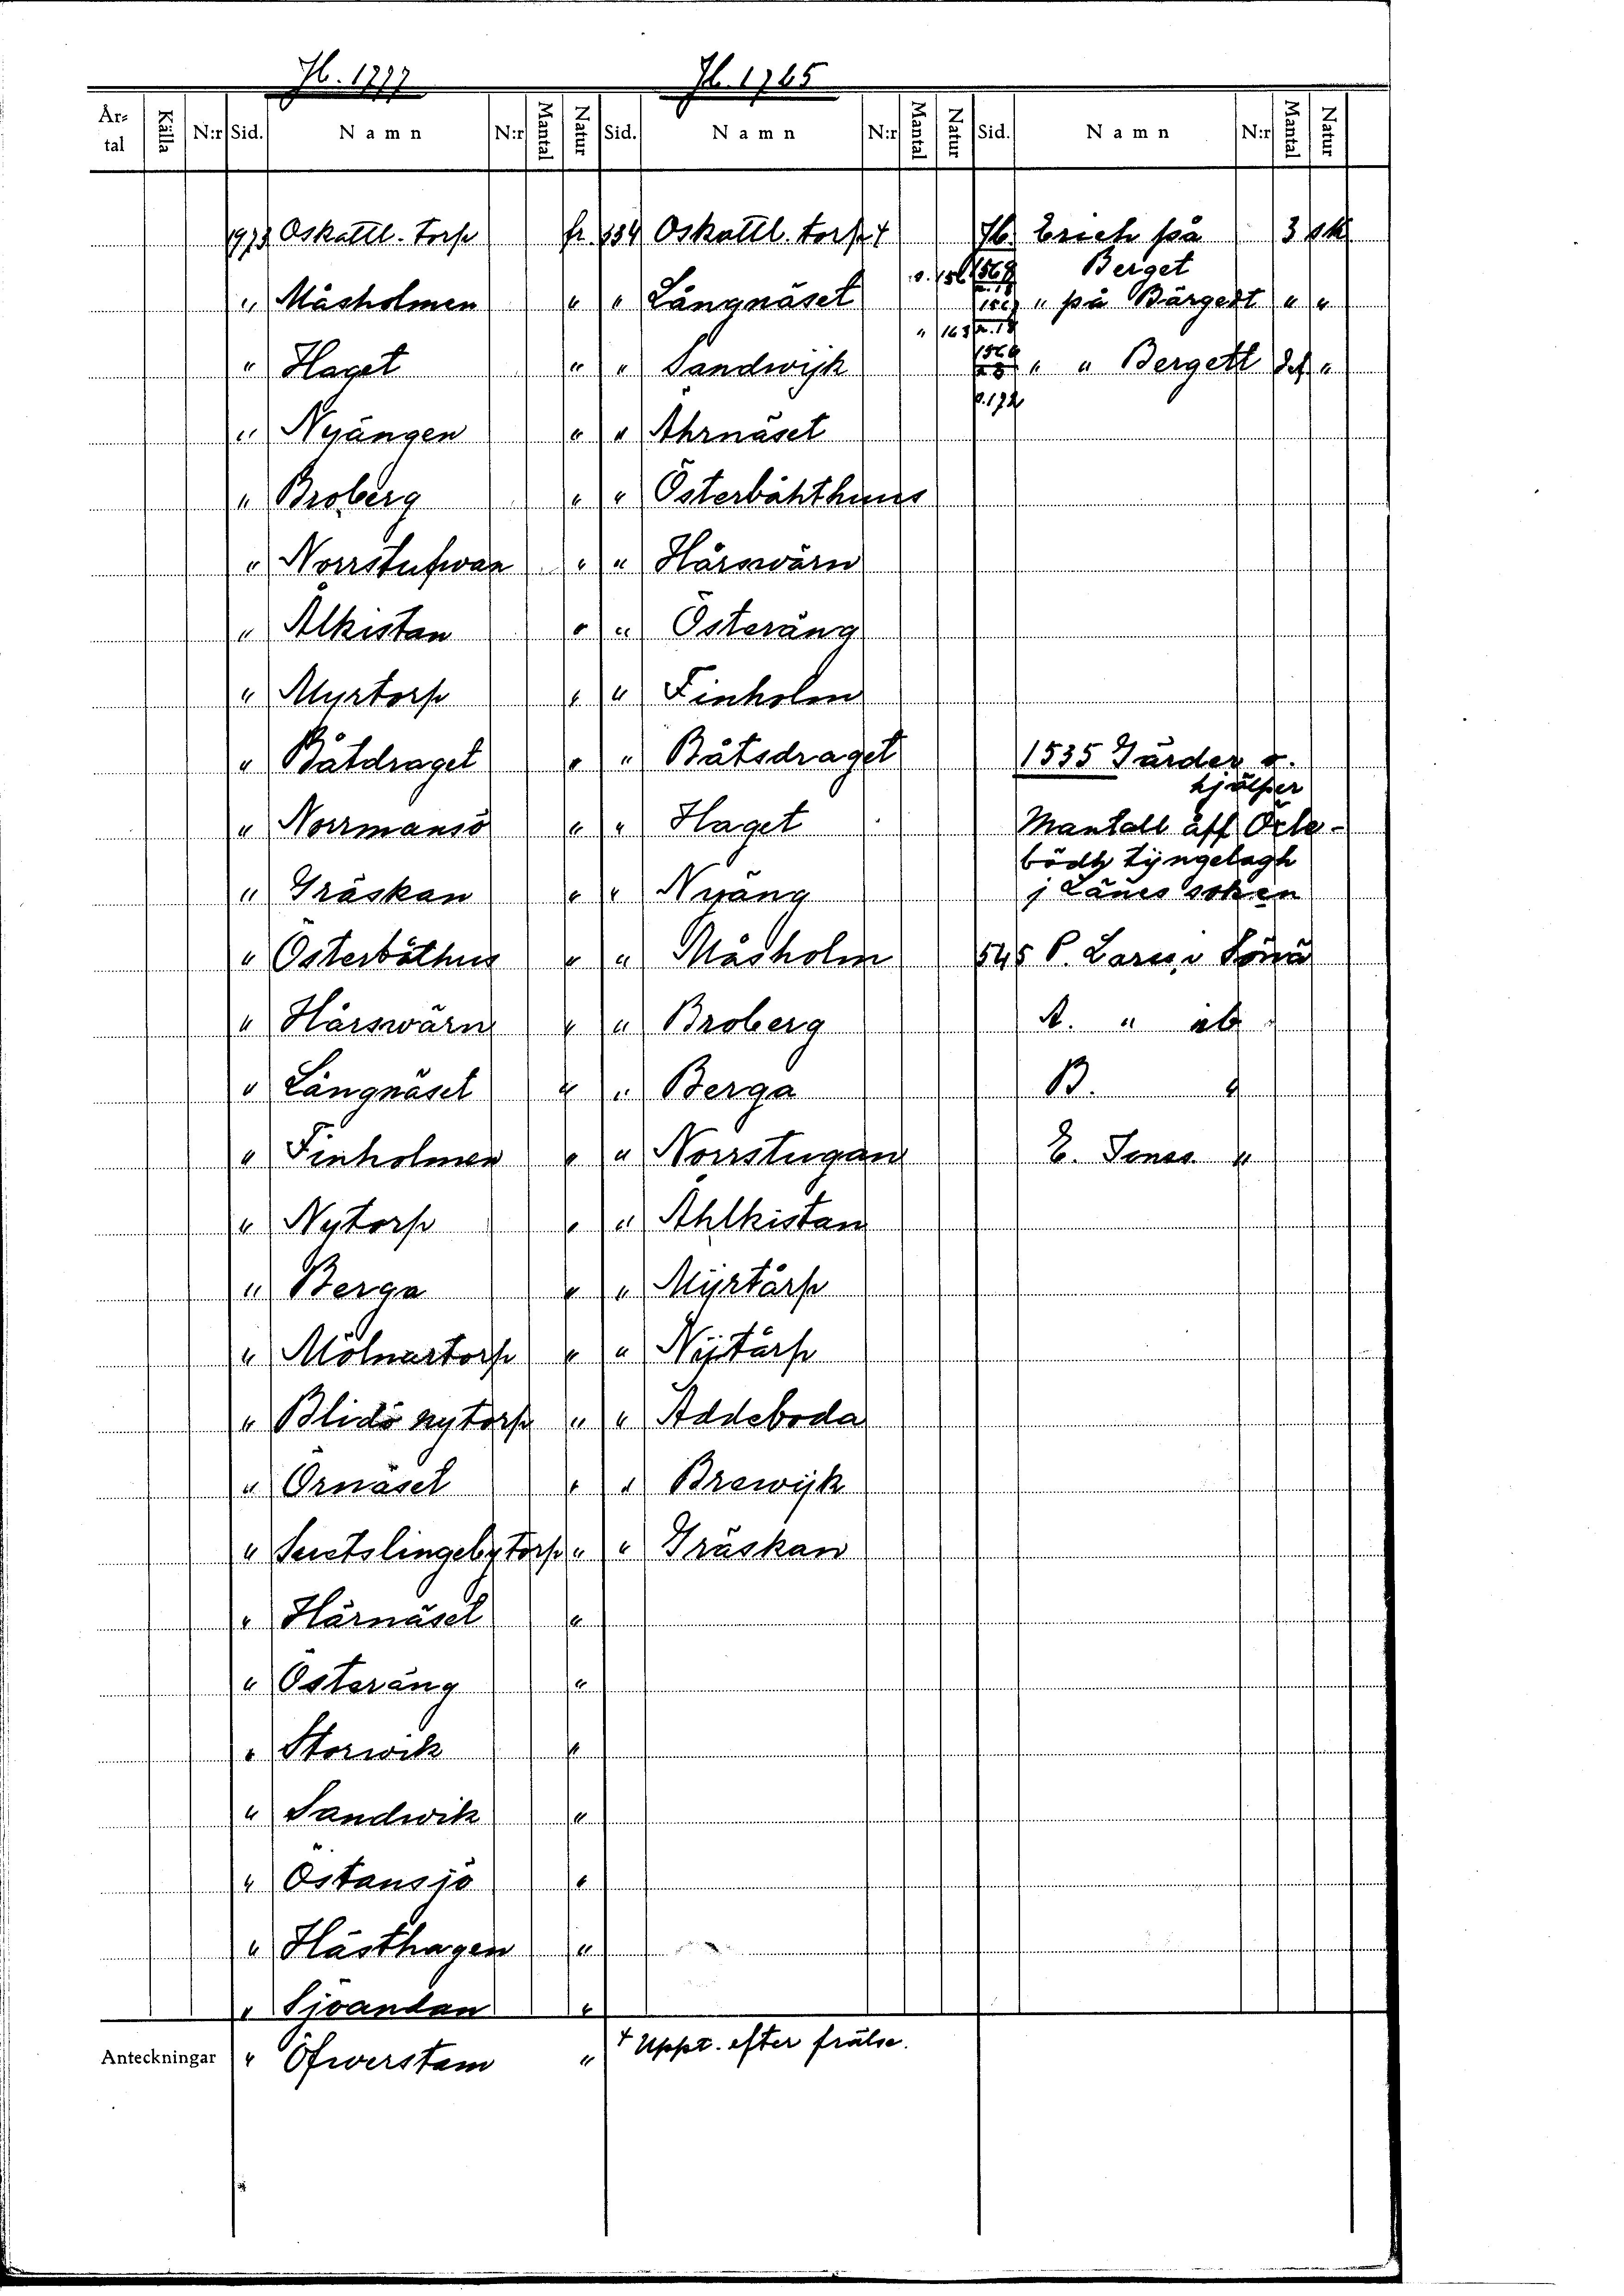 Jb. 1777 Jb. 1765
År-tal Källa N:r Sid. Namn N:r Mantal Natur Sid. Namn N:r Mantal Natur Sid. Namn N:r Mantal Natur
1973 Oskattl. torp fr. 534 Oskattl. torp + Jb. Erich på 3 sk
Berget
" Måsholmen " " Långnäset " på Bärgett " "
" Haget " " Sandwijk " " Bergett "
p. 172
" Nyängen " " Ahrnäset
" Broberg " " Österbåhthuus
" Norrstufwan " " Hårswärn
" Ålkistan " " Österäng
" Myrtorp " " Finholm
" Båtdraget " " Båtsdraget 1535 Gärder o.
hjälper
" Norrmansö " " Haget Mantall aff Öcle-
bödh tijngelagh
" Gräskan " " Nyäng j Länes soken
" Österbåthus " " Måsholm 545 P. Larss. i
" Hårswärn " " Broberg A. " ib
" Långnäset " " Berga B. "
" Finholmen " " Norrstugan E. Jonss. "
" Nytorp " " Åhlkistan
" Berga " " Myrtårp
" Mölnartorp " " Nijtårp
" Blidö nytorp " " Addeboda
" Örnäset " " Brewijk
" torp " " Gräskan
" Härnäset "
" Österäng "
" Storwik "
" Sandwik "
" Östansjö "
" Hästhagen "
" Sjöändan "
Anteckningar " Öfwerstam " + Uppt. efter frälse.